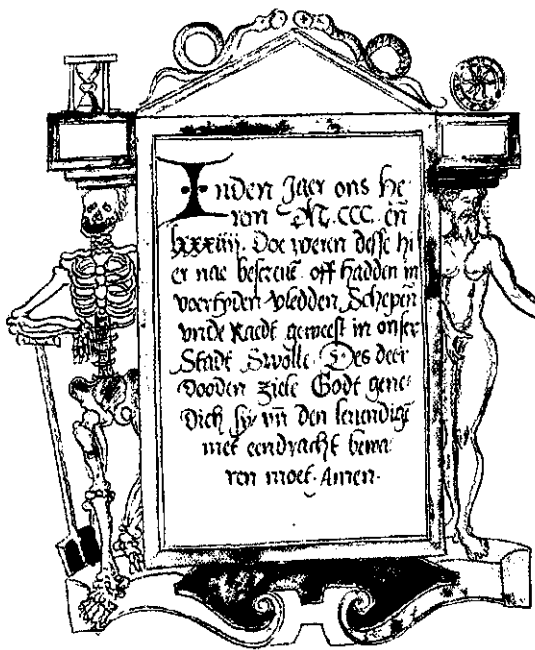 Inden Jaer ons he-
ren M. CCC. en̄
lxxxiiij. Doe weren desse hi
er nae bescreuē. off hadden in
voertyden vledden, Schepen̄
vnde Raedt geweest in onser
Stadt Swolle. Des deer
dooden ziele Godt gene-
dich sy. vn̄ den leuendigē
met eendracht bewa
ren moet. Amen.